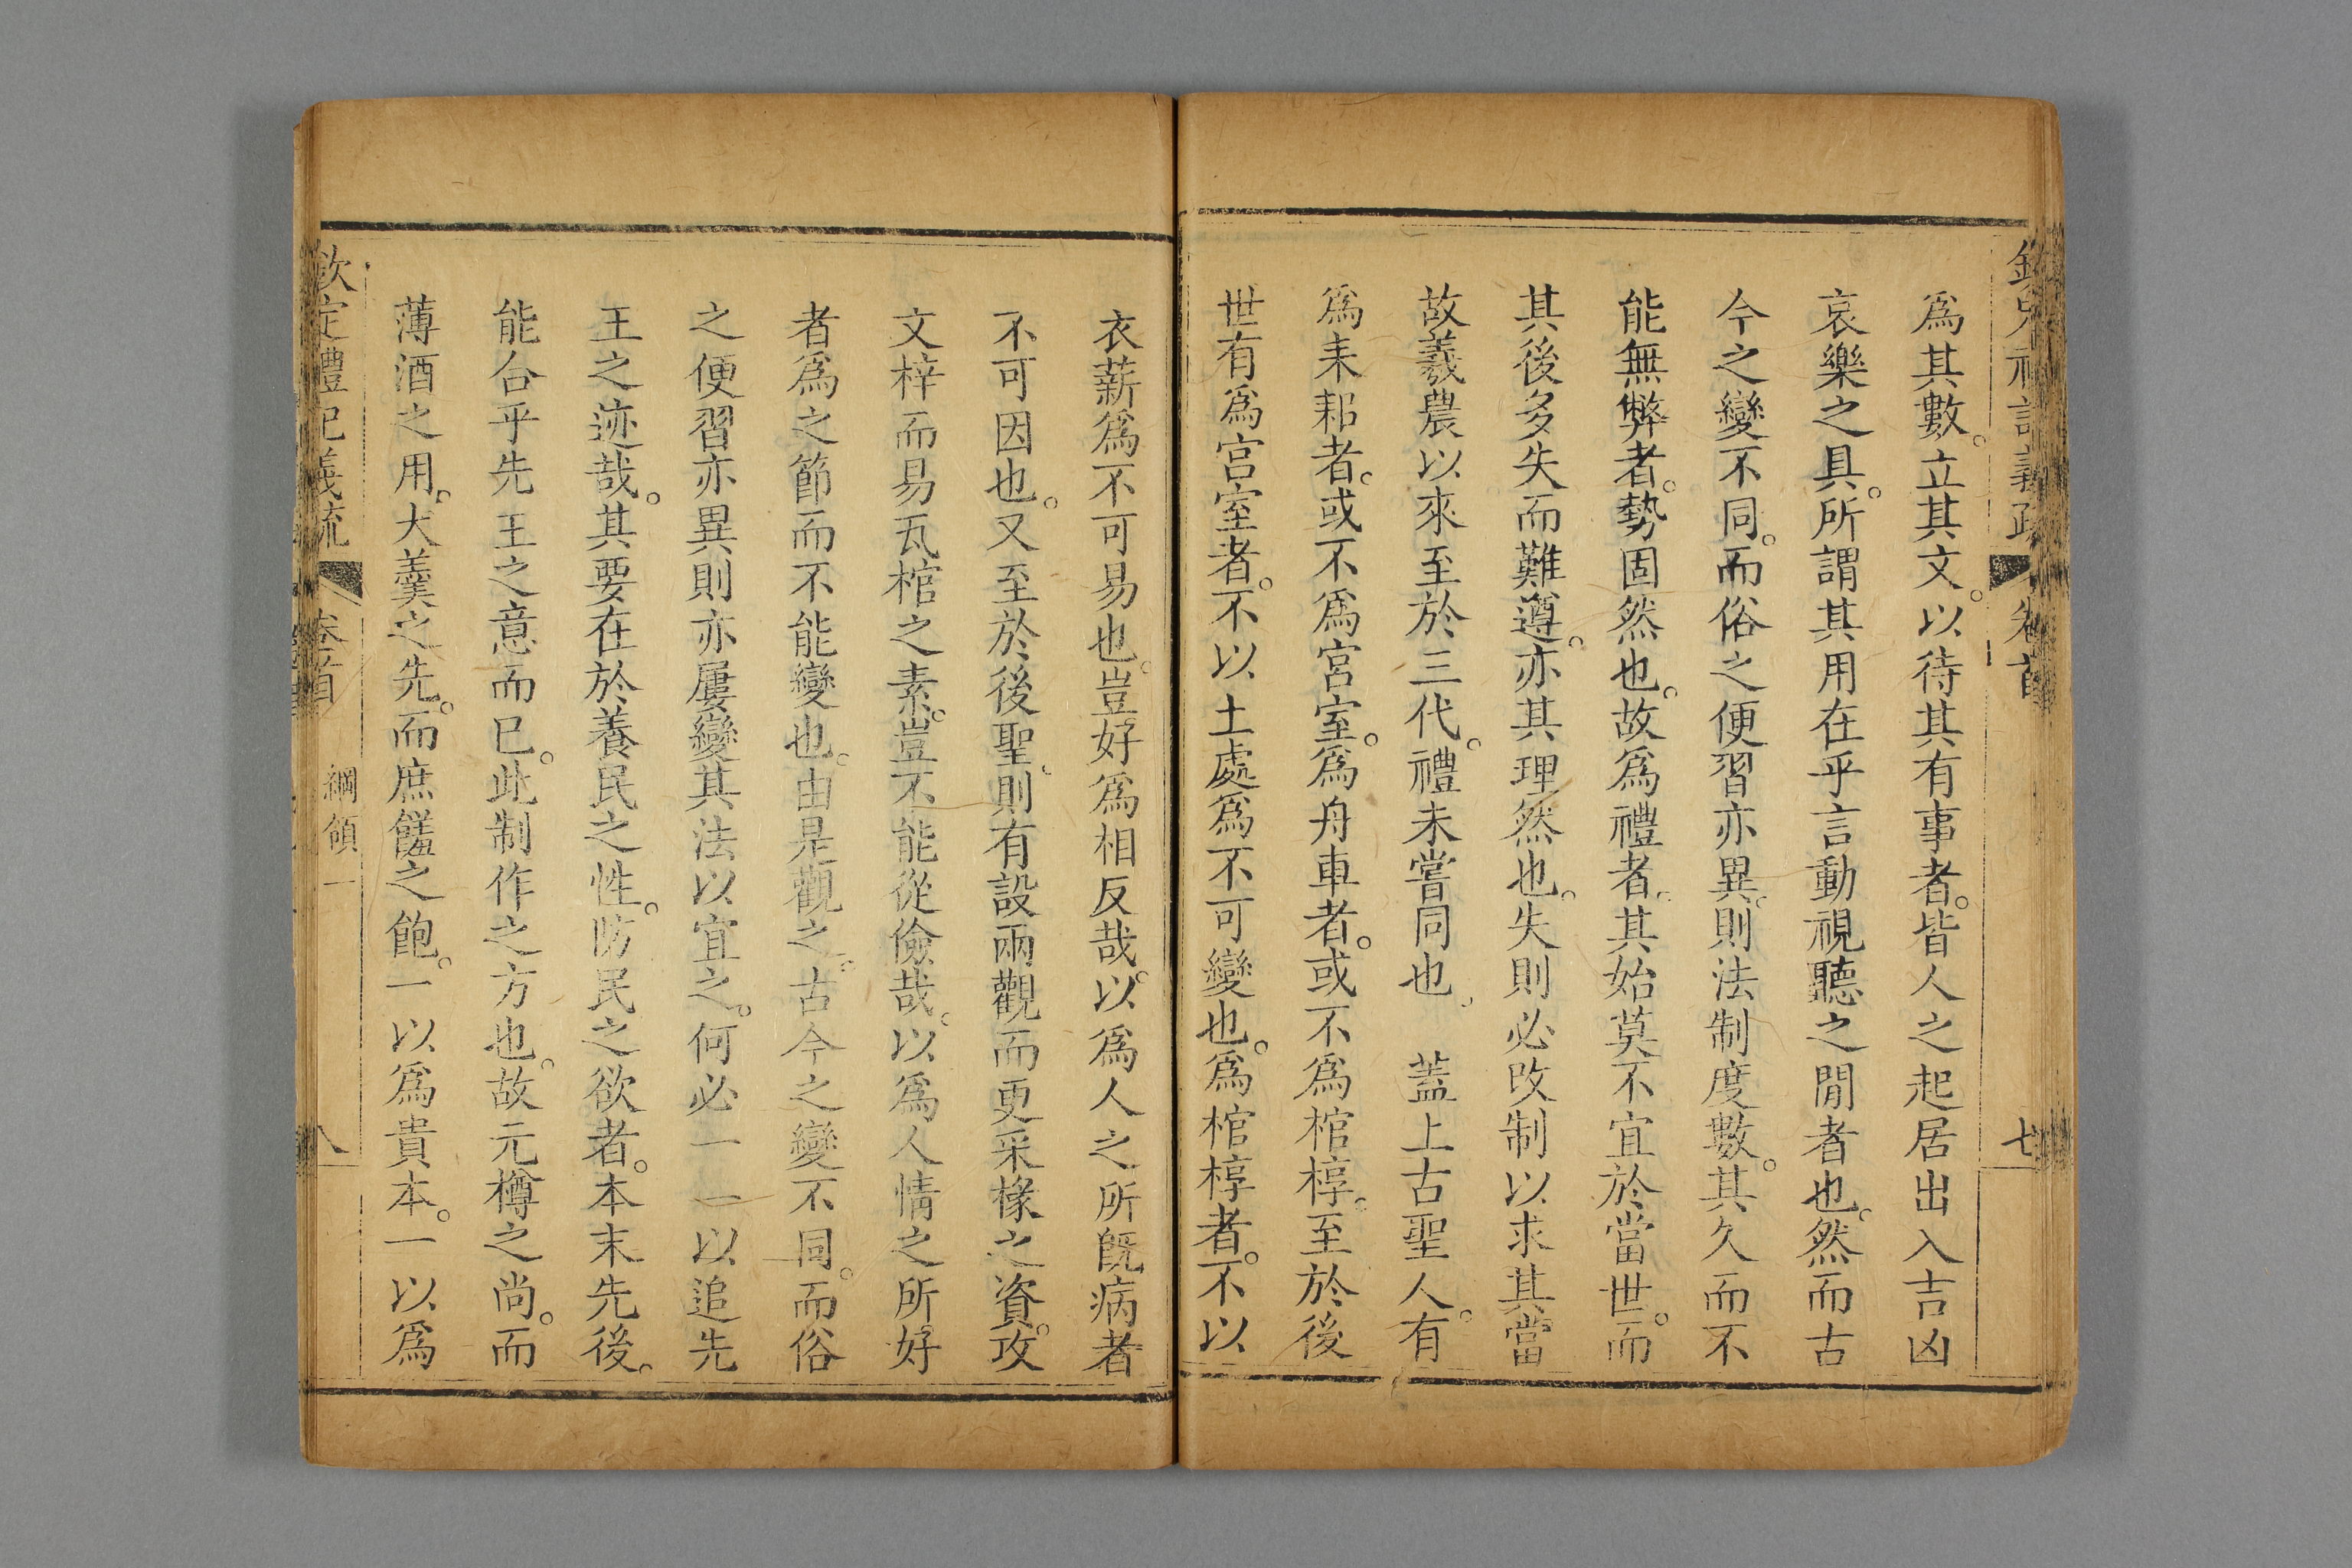 爲其數。立其文。以待其有事者。皆人之起居出入吉凶
哀樂之具。所謂其用在乎言動視聽之閒者也。然而古
今之變不同。而俗之便習亦異。則法制度數。其久而不
能無弊者。勢固然也。故爲禮者。其始莫不宜於當世。而
其後多失而難遵。亦其理然也。失則必改制以求其當
故羲農以來至於三代。禮未嘗同也。蓋上古聖人。有
爲耒耜者。或不爲宮室。爲舟車者。或不爲棺椁。至於後
世有爲宮室者。不以土處爲不可變也。爲棺椁者。不以
衣薪爲不可易也。豈好爲相反哉。以爲人之所旣病者
不可因也。又至於後聖。則有設兩觀而更采椽之資。攻
文梓而易瓦棺之素。豈不能從儉哉。以爲人情之所好
者爲之節而不能變也。由是觀之。古今之變不同。而俗
之便習亦異。則亦屢變其法以宜之。何必一一以追先
王之迹哉。其要在於養民之性。防民之欲者。本末先後。
能合乎先王之意而已。此制作之方也。故元樽之尚。而
薄酒之用。大羹之先。而庶羞之飽。一以爲貴本。一以爲
欽定禮記義疏 卷首 綱領一 八